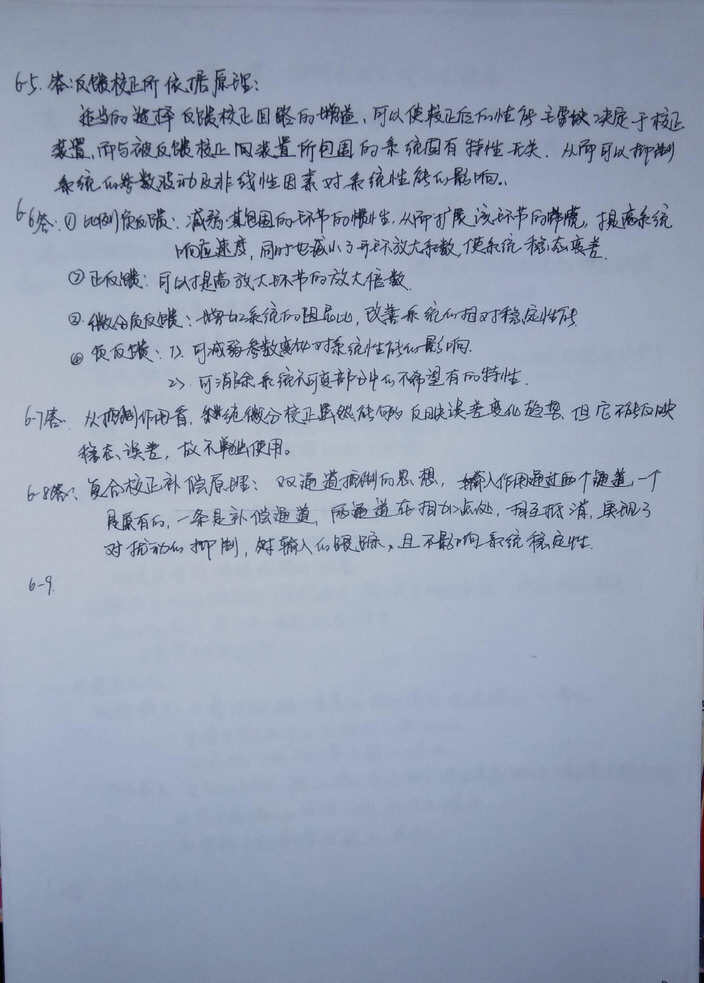 6-5. 答:反馈校正所依据原理:
适当的选择反馈校正回路的增益,可以使校正后的性能主要取决于校正
装置,而与被反馈校正装置所包围的系统固有特性无关.从而可以抑制
系统的参数波动及非线性因素对系统性能的影响.
6-6答:① 比例负反馈:减弱其包围的环节的惯性,从而扩展该环节的带宽,提高系统
响应速度,同时也减小了开环放大系数,使系统稳态变差.
② 正反馈:可以提高放大环节的放大倍数.
③ 微分负反馈:增加系统的阻尼比,改善系统的相对稳定性能
④ 负反馈:1>. 可减弱参数变化对系统性能的影响.
2>. 可消除系统不可变部分中的不希望有的特性.
6-7答. 从控制作用看,纯微分校正虽然能够反映误差变化趋势,但它不能反映
稳态误差,故不单独使用。
6-8答:、复合校正补偿原理:双通道控制的思想,输入作用通过两个通道,一个
是原有的,一条是补偿通道,两通道在相加点处,相互抵消,实现了
对扰动的抑制,对输入的跟踪,且不影响系统稳定性.
6-9.